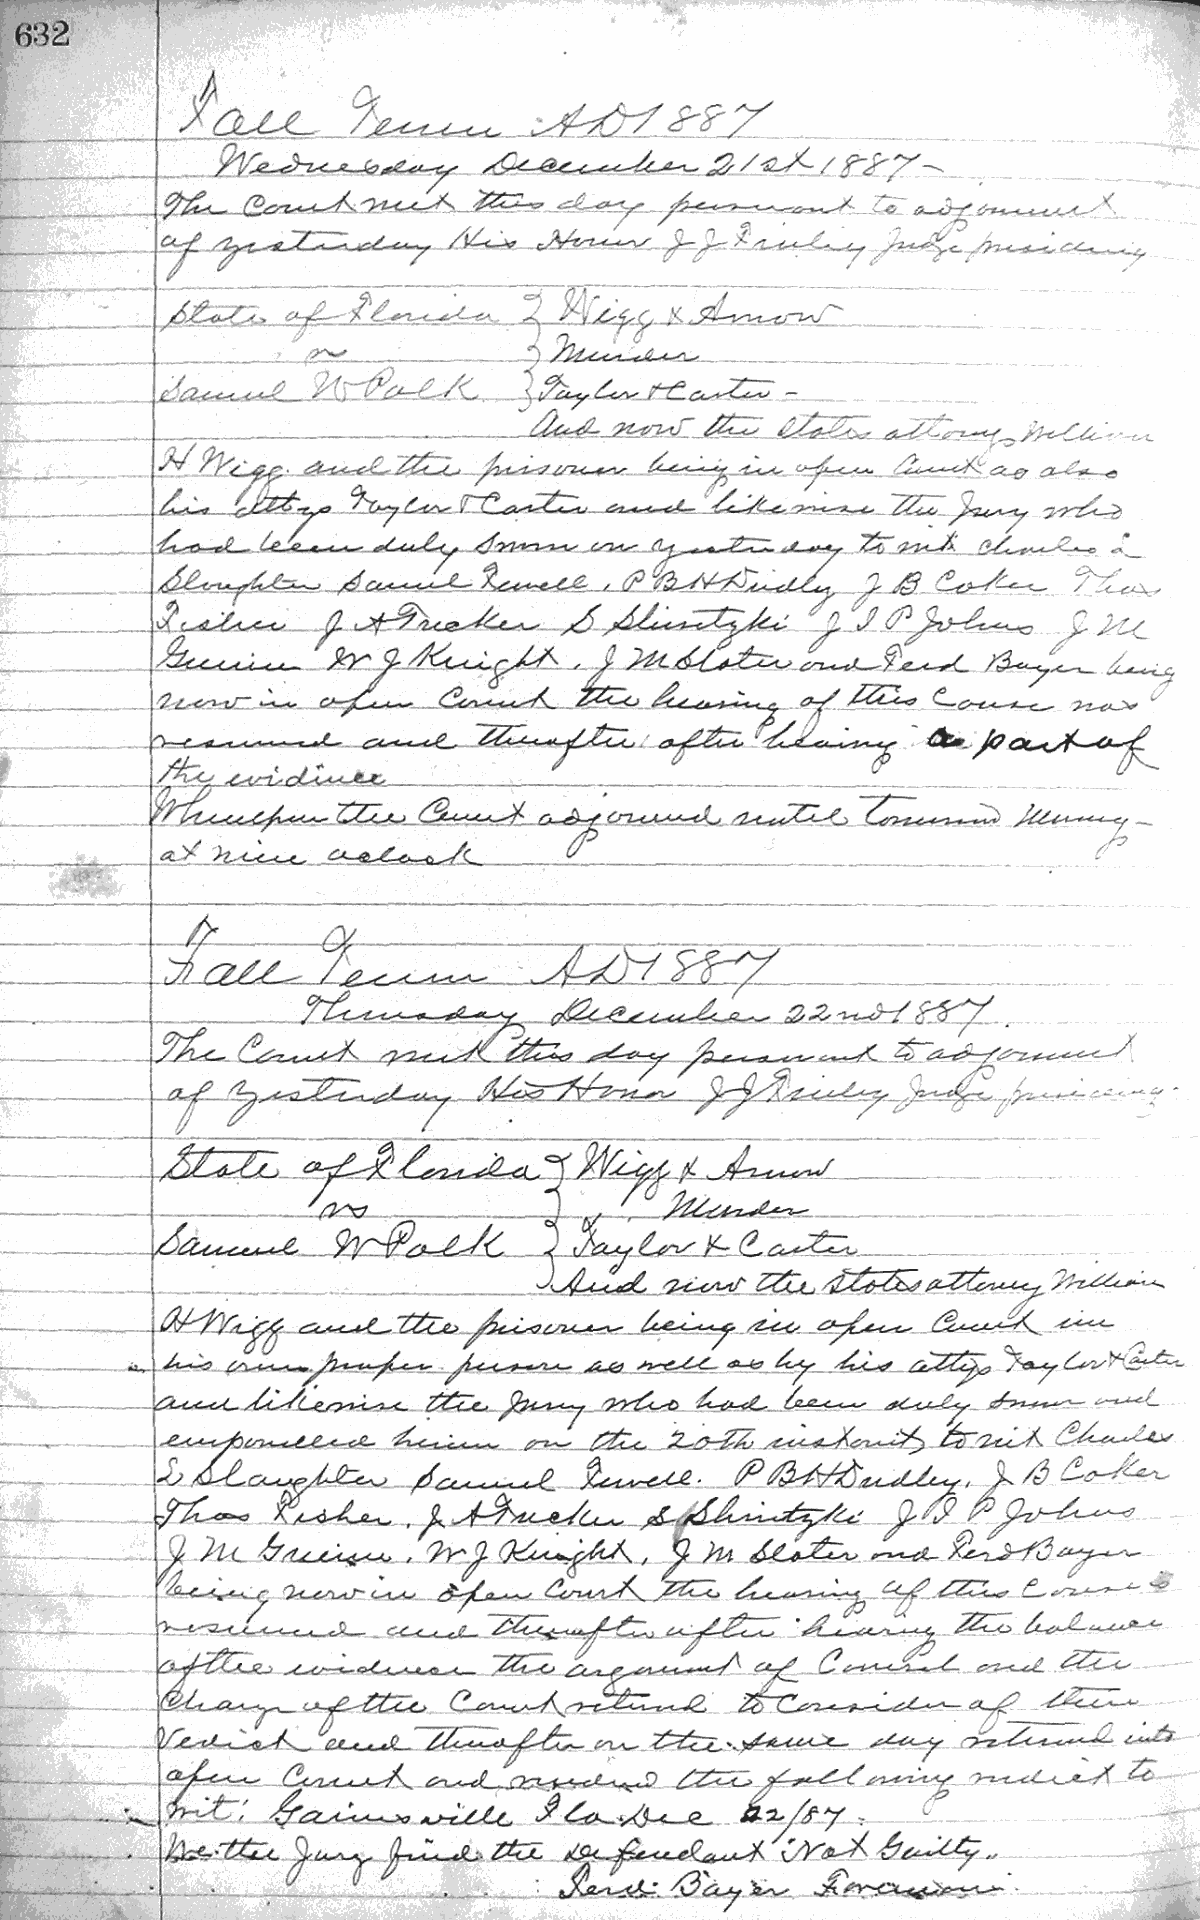 632
Fall Term AD 1887
Wednesday December 21st 1887-
The Court met this day persuant to adjournment
of yesterday His Honor J J Finley Judge presiding
State of Florida } Wigg & Arnow
vs } Murder
Samuel W Polk } Taylor & Carter -
And now the States attorney William
H Wigg and the prisoner being in open Court as also
his attys Taylor & Carter and likewise the Jury who
had been duly sworn on yesterday to wit Charles
Slaughter Samuel Tewell. P B H Dudley J B Coker Thos
Fisher J A Tucker S Slinitzki J I P Johns J M
W J Knight. J M Slater and Ferd Bayer being
now in open Court the hearing of this Cause was
resumed and thereafter after hearing a part of
the evidence
Whereupon the Court adjourned until tomorrow Morning -
at nine oclock
Fall Term AD 1887
Thursday December 22nd 1887.
The Court met this day persuant to adjournment
of yesterday His Honor J J Finley Judge presiding
State of Florida } Wigg & Arnow
vs } Murder
Samuel W Polk } Taylor & Carter
And now the States attorney William
H Wigg and the prisoner being in open Court in
his own proper person as well as by his attys Taylor & Carter
and likewise the Jury who had been duly sworn and
empanelled herein on the 20th instant, to wit Charles
Slaughter Samuel Tewell. P B H Dudley, J B Coker
Thos Fisher, J A Tucker S Slinitzki J I P Johns
J M W J Knight, J M Slater and Ferd Bayer
being now in open Court the hearing of this Cause is
resumed and thereafter after hearing the balance
of the evidence the argument of Counsel and the
Charge of the Court retired to Consider of their
Verdict and thereafter on the same day returned into
open Court and rendered the following verdict to
wit: Gainesville Fla Dec 22/87.
We the Jury find the Defendant Not Guilty.
Ferd Bayer Foreman